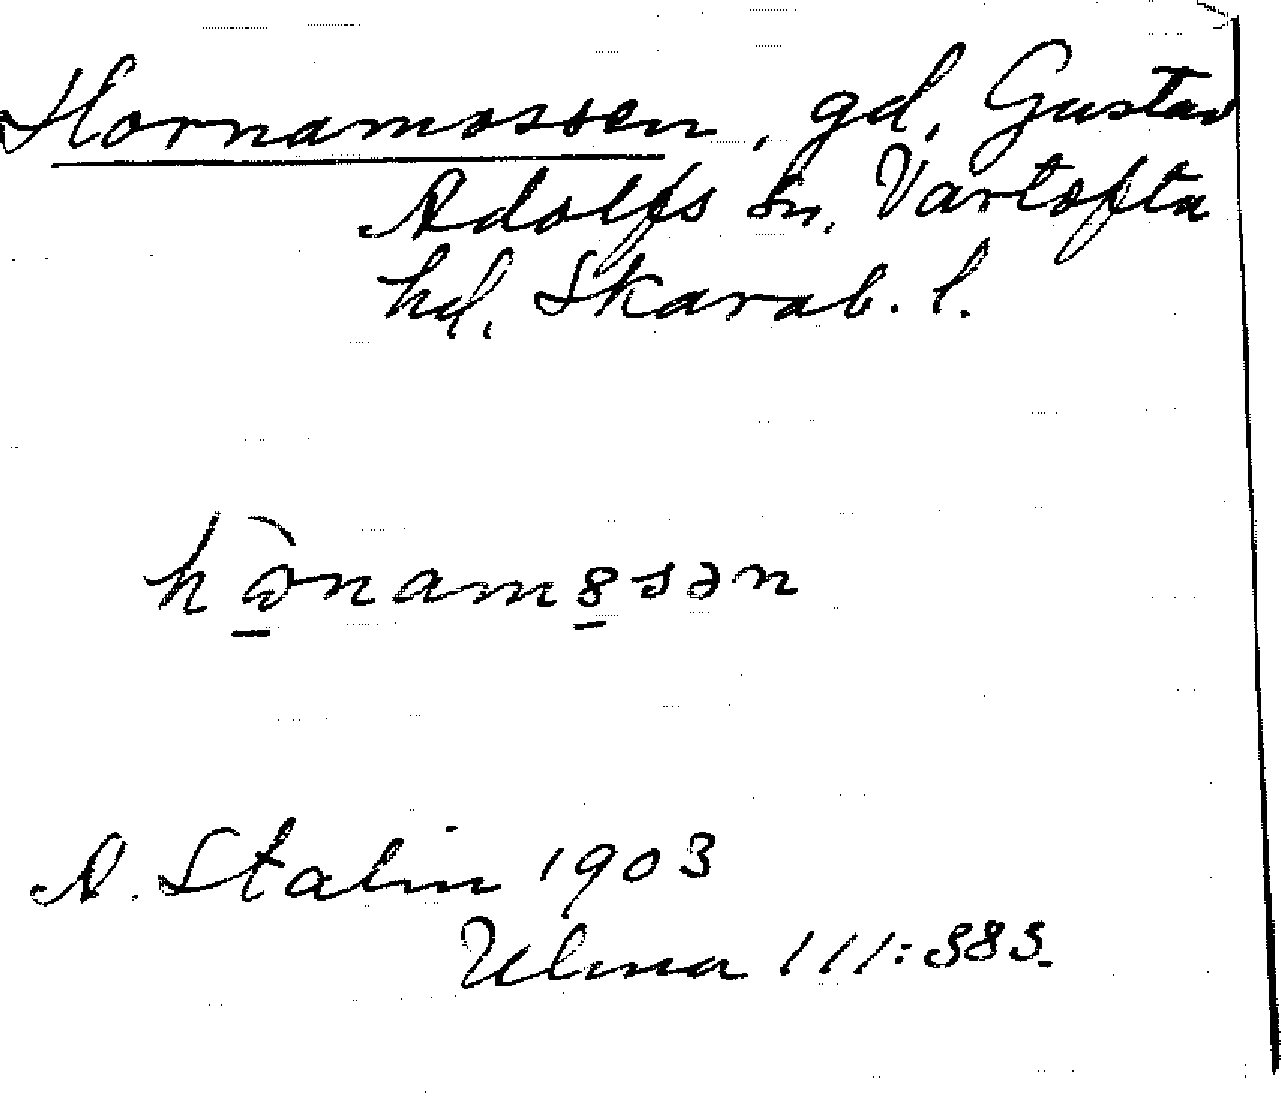 Hornamossen, gd, Gustav
Adolfs sn, Vartofta
hd, Skarab. l.
hɔ̀namꝏsən
A. Stalin 1903
Ulma 111:585.